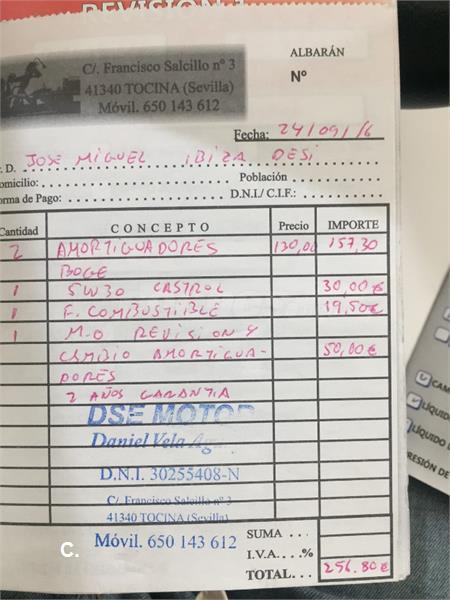 REVISION 1
C/. Francisco Salcillo nº 3
41340 TOCINA (Sevilla)
Móvil. 650 143 612
ALBARÁN
Nº
Fecha: 24/09/16
r. D. JOSE MIGUEL IBIZA DESI
omicilio: Población
orma de Pago: D.N.I./ C.I.F.:
Cantidad CONCEPTO Precio IMPORTE
2 AMORTIGUADORES 130,00 157,30
BOGE
1 5W30 CASTROL 30,00€
1 F. COMBUSTIBLE 19,50€
1 M.O REVISION Y
CAMBIO AMORTIGUA- 50,00€
DORES
2 AÑOS GARANTIA
DSE MOTOR
Daniel Vela
D.N.I. 30255408-N
C/. Francisco Salcillo nº 3
41340 TOCINA (Sevilla)
Móvil. 650 143 612
C.
SUMA
I.V.A....%
TOTAL... 256.80€
CAM
LÍQUIDO
LÍQUIDO D
RESIÓN DE